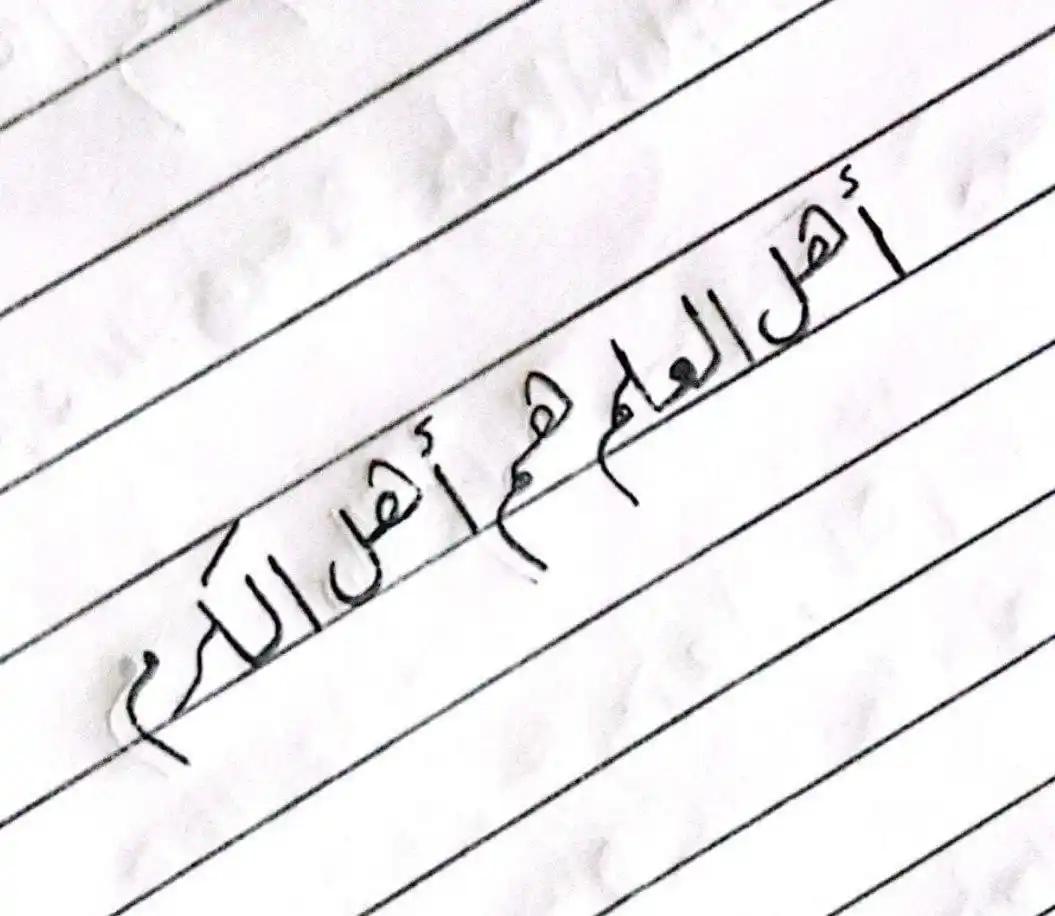 أهل العلم هم أهل الكرم